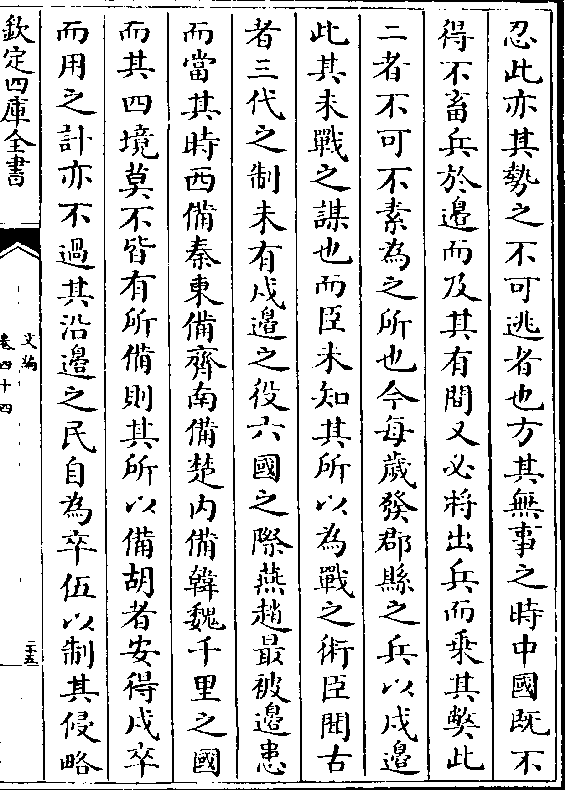 忍此亦其勢之不可逃者也方其無事之時中國既不
得不畜兵於邊而及其有間又必將出兵而乘其弊此
二者不可不素為之所也今每歲發郡縣之兵以戍邊
此其未戰之謀也而臣未知其所以為戰之術臣聞古
者三代之制未有戍邊之役六國之際燕趙最被邊患
而當其時西備秦東備齊南備楚内備韓魏千里之國
而其四境莫不皆有所備則其所以備胡者安得戍卒
而用之計亦不過其沿邊之民自為卒伍以制其侵略
欽定四庫全書
文編
卷四十四
二十五